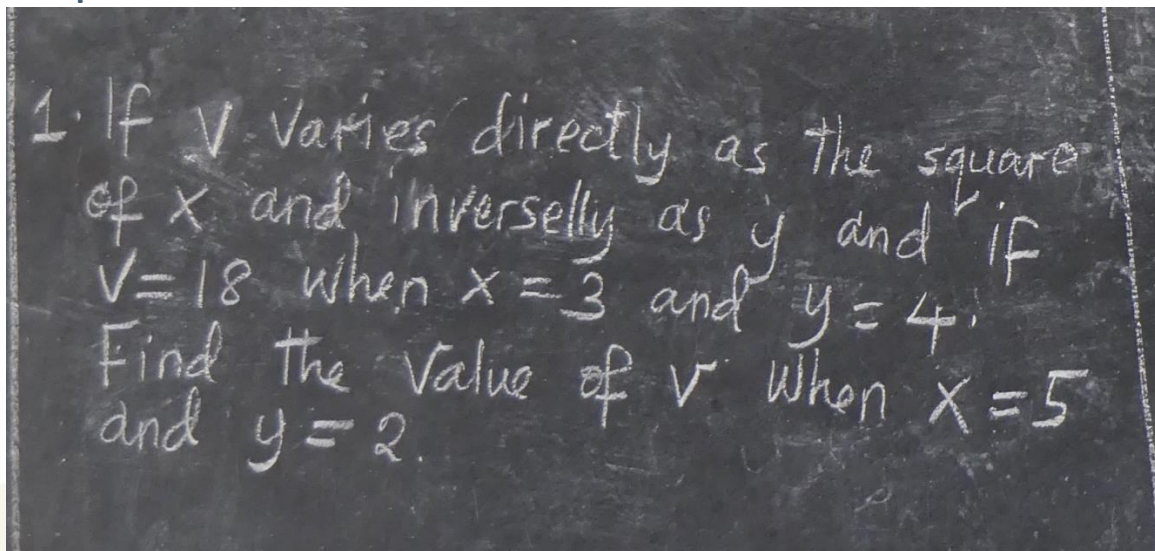 1. If V varies directly as the square
of x and inverselly as y and if
V=18 when x = 3 and y = 4.
Find the value of v when x = 5
and y = 2.